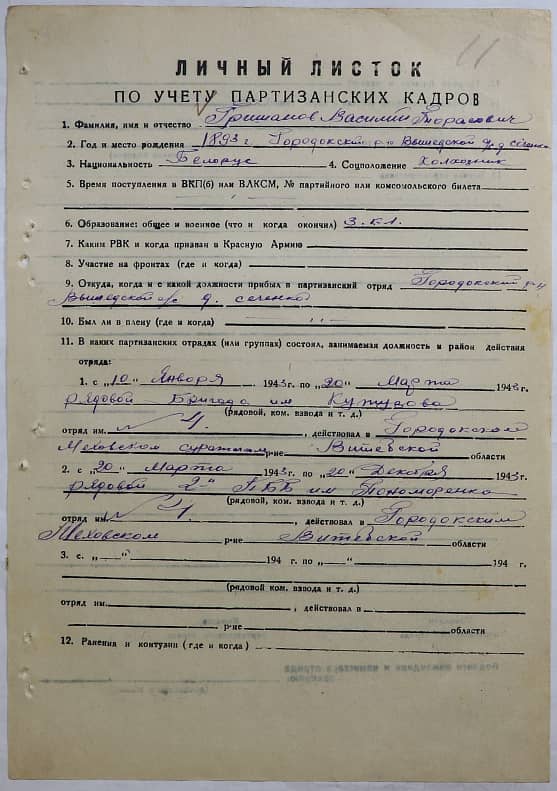 11
ЛИЧНЫЙ ЛИСТОК
ПО УЧЕТУ ПАРТИЗАНСКИХ КАДРОВ
1. Фамилия, имя и отчество Гришанов Василий Тарасович
2. Год и место рождения 1893 г Городокский р-н Вышедской
3. Национальность Белорус 4. Соцположение Колхозник
5. Время поступления в ВКП(б) или ВЛКСМ, № партийного или комсомольского билета
6. Образование: общее и военное (что и когда окончил) 3 кл.
7. Каким РВК и когда призван в Красную Армию
8. Участие на фронтах (где и когда)
9. Откуда, когда и с какой должности прибыл в партизанский отряд Городокский р-н
Вышедской с/с д.
10. Был ли в плену (где и когда) "
11. В каких партизанских отрядах (или группах) состоял, занимаемая должность и район действия
отряда:
1. с „10" Января 1943 г. по „20" Марта 1943 г.
рядовой Бригада им Кутузова
(рядовой, ком. взвода и т. д.)
отряд им. 4, действовал в Городокском
Меховском р-не Витебской области
2. с „20" Марта 1943 г. по „20" Декабря 1943 г.
рядовой 2-я ББ им Пономоренко
(рядовой, ком. взвода и т. д.)
отряд им. 4, действовал в Городокским
Меховском р-не Витебской области
3. с. „ — " 194 г. по „ — " 194 г.
(рядовой ком. взвода и т. д.)
отряд им. , действовал в
р-не области
12. Ранения и контузии (где и когда)